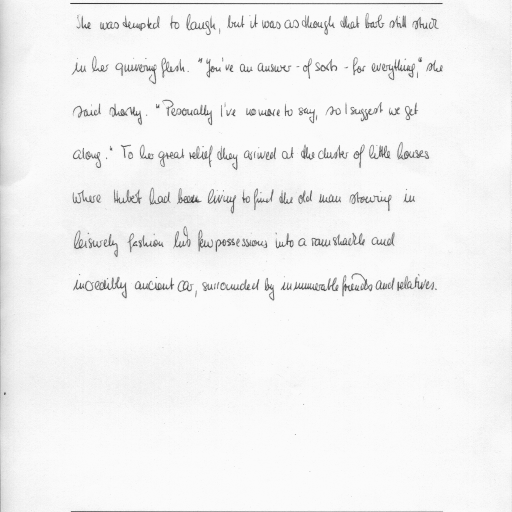 She was tempted to laugh, but it was as though that barb still stuck
in her quivering flesh. "You've an answer - of sorts - for everything," she
said shortly. "Pesonally I've no more to say, so I suggest we get
along." To her great relief they arived at the cluster of little houses
where Hubert had been living to find the old man stowing in
leisurely fashion his few possessions into a ramshackle and
incredibly ancient car, surrounded by innumerable friends and relatives.